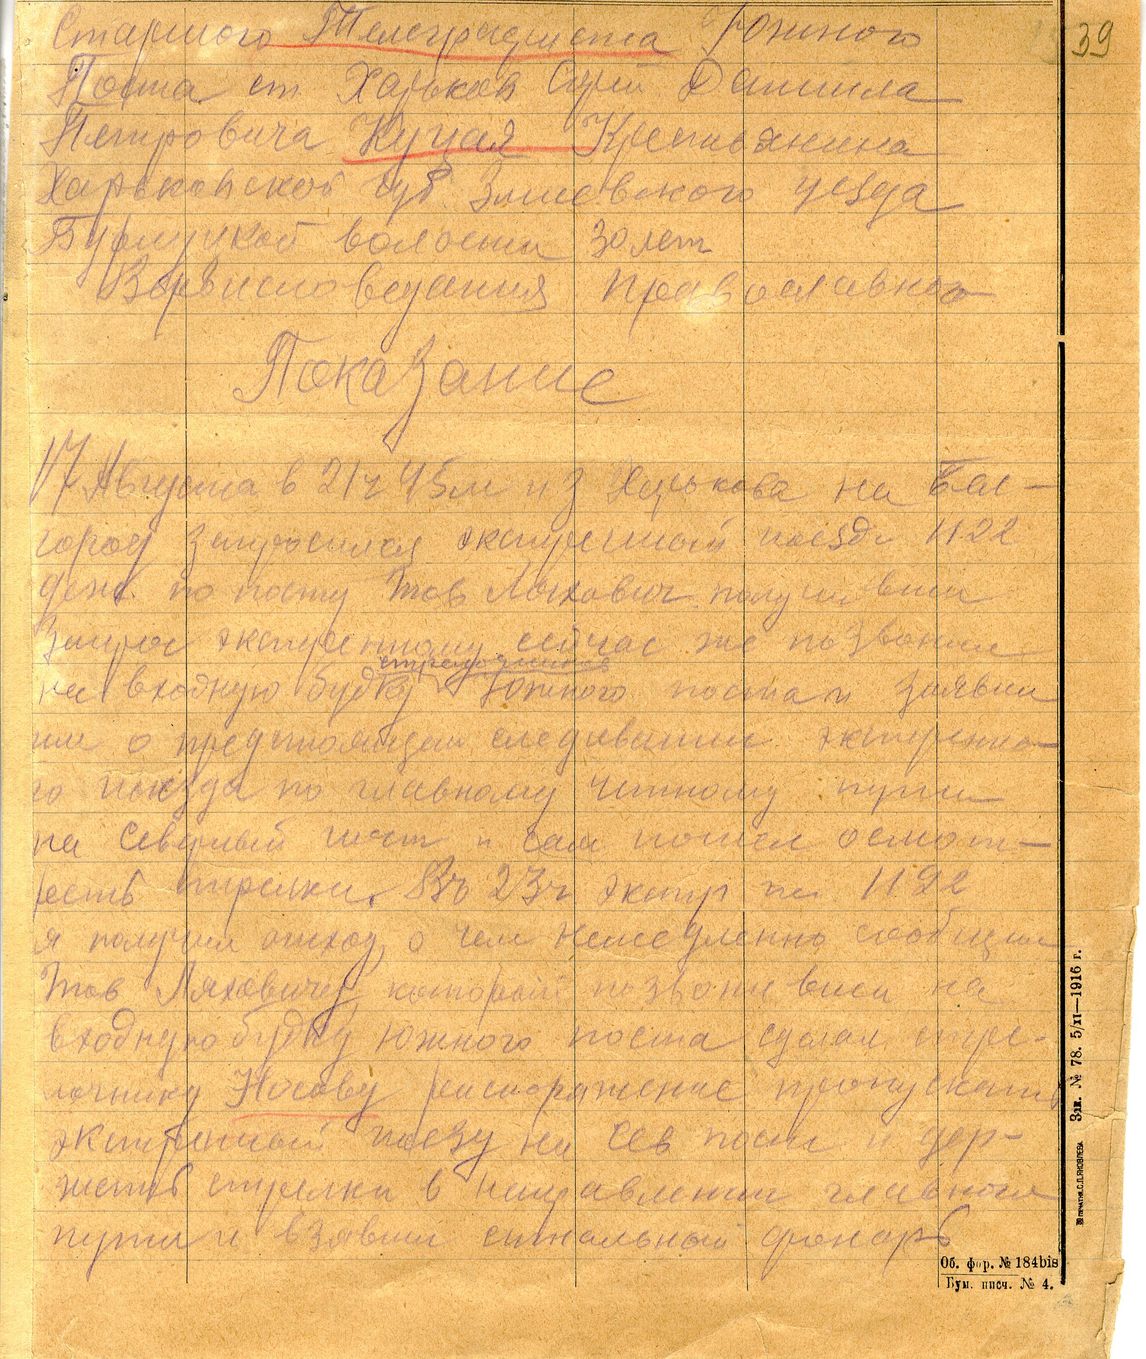 39
Старшого Телеграфиста Южного
Поста ст Харьков Сорт Даниила
Петровича Куцая Крестьянина
Харьковской губ. Змиевского уезда
волости 30 лет
Вероисповедания Православного
Показание
17 Августа в 21ч 45м из Харькова на Бел-
город запросился экстренный поезд 1122
деж. по посту Тов Ляхович получивши
запрос экстренному сейчас же позвонил
стрелочников
на входную будку Южного поста и заявил
им о предстоящем следовании экстренно-
го поезда по главному чётному пути
на Северный пост и сам пошел осмот-
реть стрелки. Въ 23ч экстр п. 1122
я получил отход, о чем немедленно сообщил
Тов Ляховичу который позвонивши на
входную будку Южного поста сделал стре-
лочнику Носову распоряжение пропускать
экстренный поезд на Сев пост и дер-
жать стрелки в направлении главного
пути и взявши сигнальный фонарь
Зак. № 78. 5/II—1916 г.
ПЕЧАТНЯ С.П.ЯКОВЛЕВА
Об. фор. № 184bis
Бум. писч. № 4.